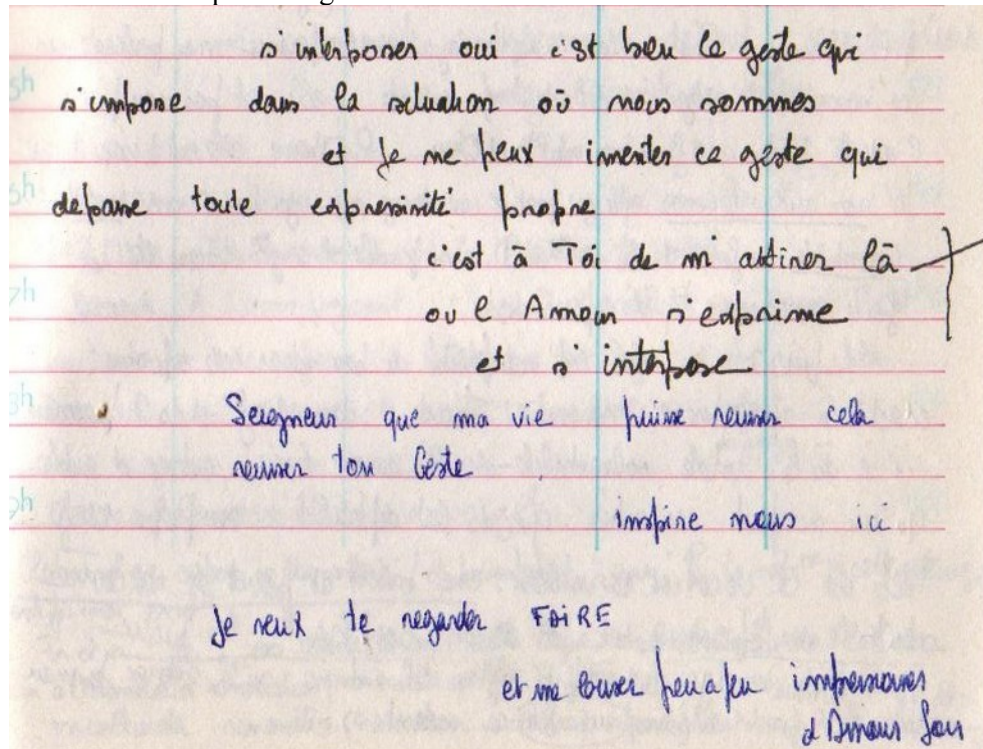 s'interposer oui c'est bien le geste qui
s'impose dans la situation où nous sommes
et je ne peux inventer ce geste qui
depasse toute expressivité propre
c'est à Toi de m attirer là
ou l Amour s'exprime
et s'interpose
Seigneur que ma vie puisse reussir cela
reussir ton Geste
inspire nous ici
Je veux te regarder FAIRE
et me laisser peu a peu impressionner
d Amour fou
5h
6h
7h
8h
9h